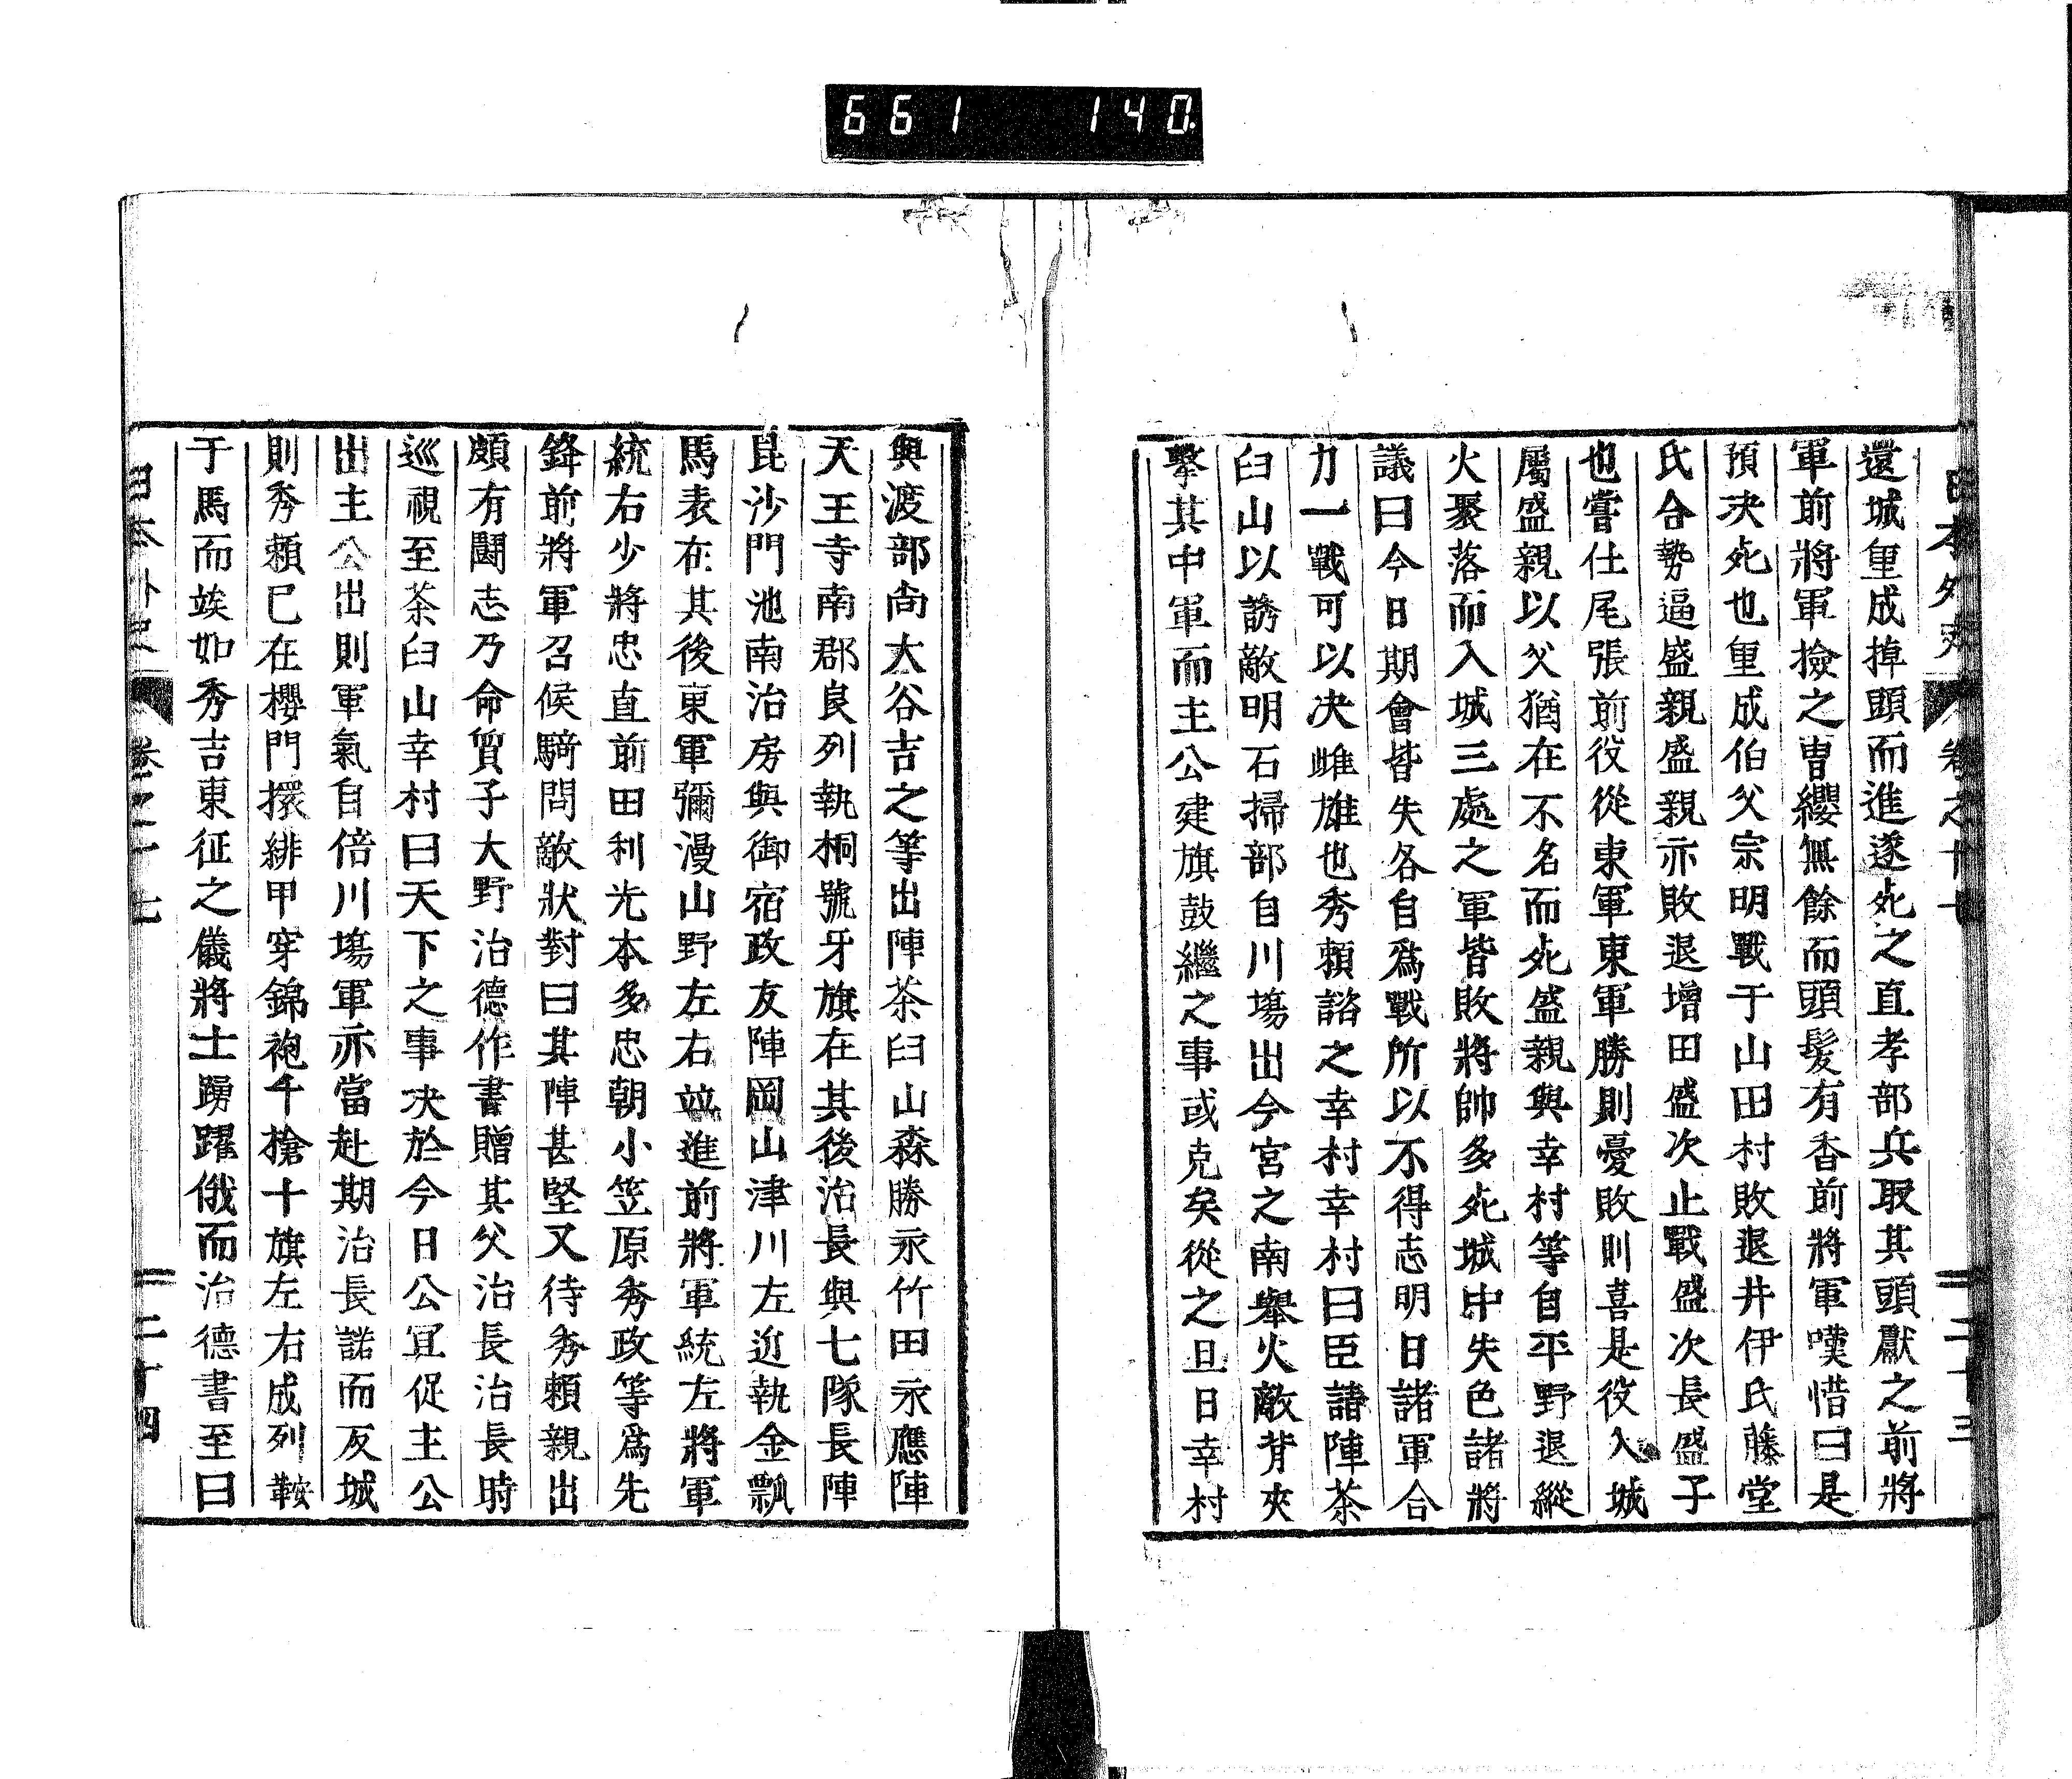 661 140
日本外史 卷之十七 二十三
還城重成掉頭而進遂死之直孝部兵取其頭獻之前將
軍前將軍撿之冑纓無餘而頭髮有香前將軍嘆惜曰是
預決死也重成伯父宗明戰于山田村敗退井伊氏藤堂
氏合勢逼盛親盛親亦敗退增田盛次止戰盛次長盛子
也嘗仕尾張前役從東軍東軍勝則憂敗則喜是役入城
屬盛親以父猶在不名而死盛親與幸村等自平野退縱
火聚落而入城三處之軍皆敗將帥多死城中失色諸將
議曰今日期會皆失各自爲戰所以不得志明日諸軍合
力一戰可以决雌雄也秀賴諮之幸村幸村曰臣請陣茶
臼山以誘敵明石掃部自川塲出今宮之南舉火敵背夾
擊其中軍而主公建旗鼓繼之事或克矣從之旦日幸村
與渡部尙大谷吉之等出陣茶臼山森勝永竹田永應陣
天王寺南郡良列執桐號牙旗在其後治長與七隊長陣
昆沙門池南治房與御宿政友陣岡山津川左近執金瓢
馬表在其後東軍彌漫山野左右竝進前將軍統左將軍
統右少將忠直前田利光本多忠朝小笠原秀政等爲先
鋒前將軍召候騎問敵狀對曰其陣甚堅又待秀賴親出
頗有鬪志乃命質子大野治德作書贈其父治長治長時
巡視至茶臼山幸村曰天下之事決於今日公宜促主公
出主公出則軍氣自倍川塲軍亦當赴期治長諾而反城
則秀賴已在櫻門擐緋甲穿錦袍千槍十旗左右成列鞍
于馬而竢如秀吉東征之儀將士踴躍俄而治德書至曰
日本外史 卷之十七 二十四